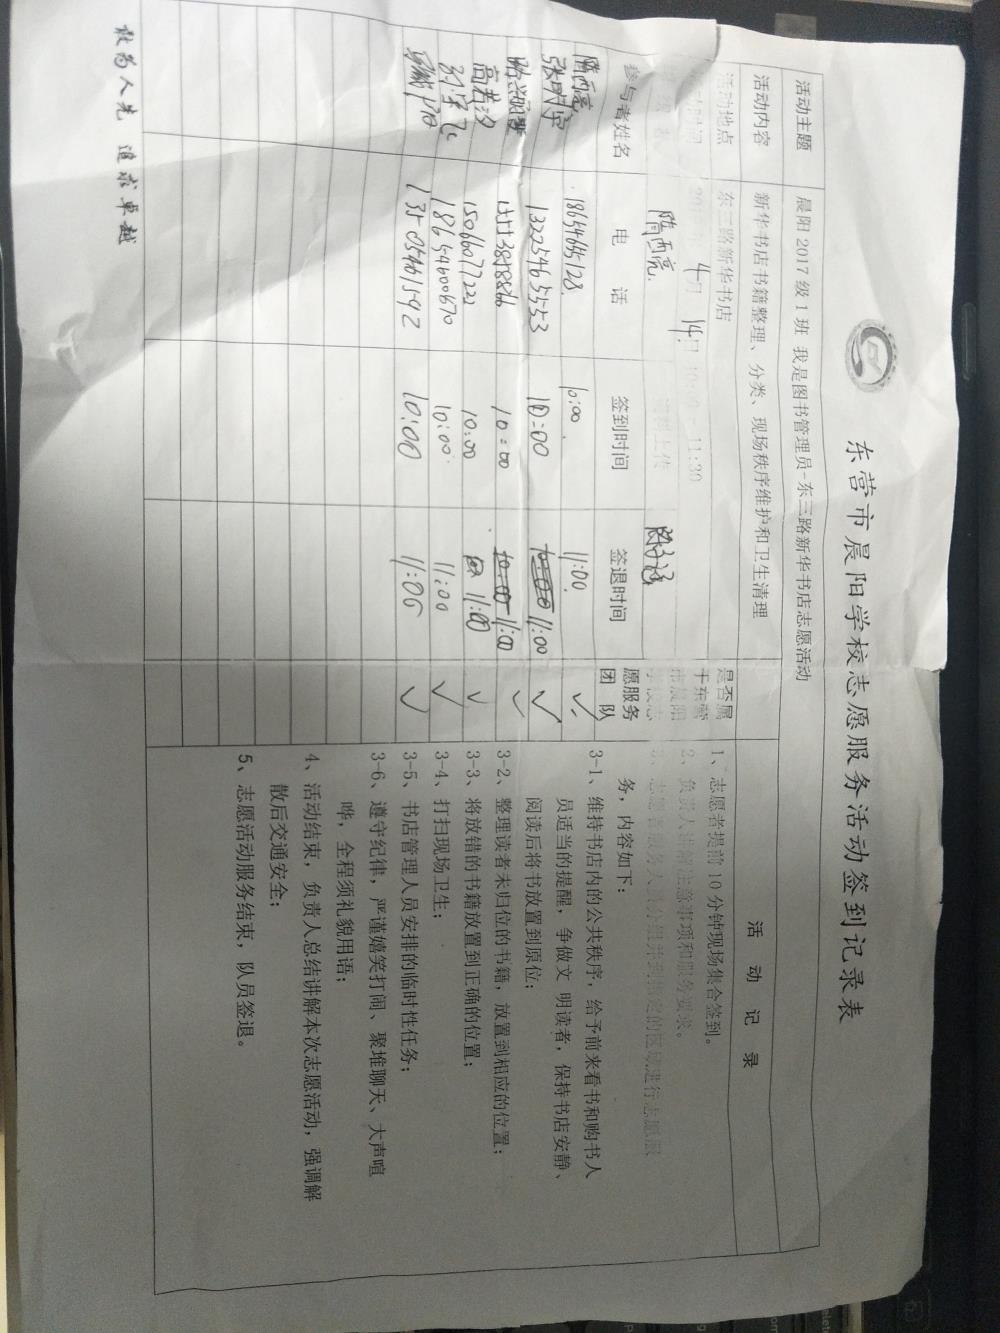 东营市晨阳学校志愿服务活动签到记录表
活动主题 晨阳 2017 级 1 班 我是图书管理员-东三路新华书店志愿活动
活动内容 新华书店书籍整理、分类、现场秩序维护和卫生清理
活动地点 东三路新华书店
活动时间 4月 14日 10:00-11:30
隋雨亮 上传
参与者姓名 电 话 签到时间 签退时间 是否属于东营市晨阳学校志愿服务团队
隋雨亮 18654665128 10:00 11:00 ✓
13225465553 10:00 11:00 ✓
10:00 11:00 ✓
高若汐 15066077222 10:00 11:00 ✓
18654600670 10:00 11:00 ✓
13505461592 10:00 11:00 ✓
活 动 记 录
1、志愿者提前 10 分钟现场集合签到。
2、负责人讲解注意事项和服务要求。
3、志愿者服务人员分组并到指定的区域进行志愿服
务，内容如下：
3-1、维持书店内的公共秩序，给予前来看书和购书人
员适当的提醒，争做文 明读者，保持书店安静、
阅读后将书放置到原位；
3-2、整理读者未归位的书籍，放置到相应的位置；
3-3、将放错的书籍放置到正确的位置；
3-4、打扫现场卫生；
3-5、书店管理人员安排的临时性任务；
3-6、遵守纪律，严谨嬉笑打闹、聚堆聊天、大声喧
哗，全程须礼貌用语；
4、活动结束，负责人总结讲解本次志愿活动，强调解
散后交通安全；
5、志愿活动服务结束，队员签退。
敢为人先 追求卓越